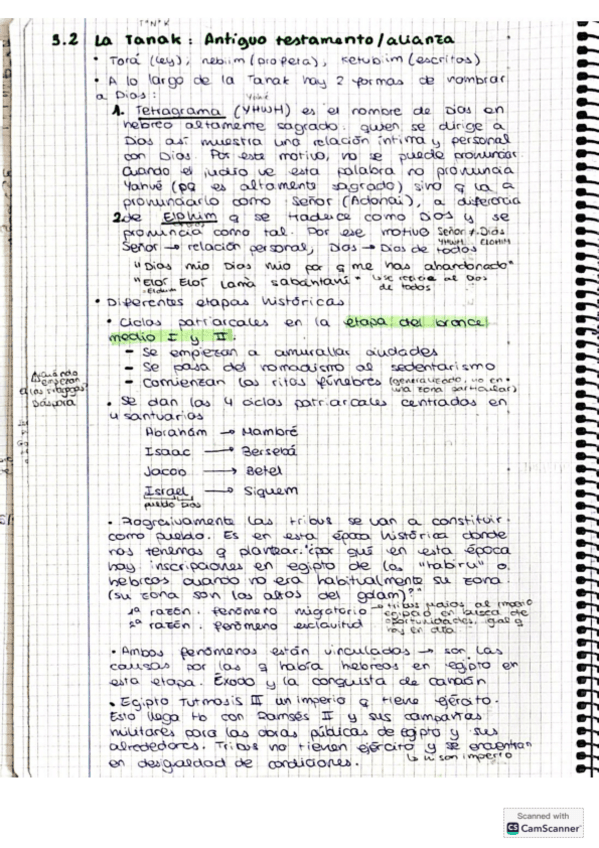 TANAK
3.2 La Tanak: Antiguo testamento/alianza
• Torá (ley), nebiim (profera), ketubiim (escritos)
• A lo largo de la Tanak hay 2 formas de nombrar
a Dios:
1. Tetragrama (YHWH) es el nombre de Dios en
hebreo altamente sagrado. quien se dirige a
Dios así muestra una relación íntima y personal
con Dios. Por este motivo, no se puede pronunciar.
Cuando el judío ve esta palabra no pronuncia
Yahvé (pq es altamente sagrado) sino q la a
pronunciarlo como Señor (Adonai), a diferencia
2. de Elohim q se traduce como Dios y se
pronuncia como tal. Por ese motivo Señor ≠ Dios
YHWH ELOHIM
Señor → relación personal, Dios → Dios de todos
"Dios mío Dios mío por q me has abandonado"
"Eloí Eloí Lama sabantani" → se refiere al Dios
de todos
• Diferentes etapas históricas
• Ciclos patriarcales en la etapa del bronce
medio I y II:
- Se empiezan a amurallar ciudades
- Se pasa del nomadismo al sedentarismo
- Comienzan los ritos fúnebres (generalizado, no en
una zona particular)
• Se dan los 4 ciclos patriarcales centrados en
4 santuarios
Abraham → Mambré
Isaac → Bersebá
Jacob → Betel
Israel → Siquem
pueblo Dios
• Progresivamente las tribus se van a constituir
como pueblo. Es en esta época histórica donde
nos tenemos q plantear: "¿por qué en esta época
hay inscripciones en egipto de las "habiru" o
hebreos cuando no era habitualmente su zona
(su zona son los altos del golam)?"
1ª razón. fenómeno migratorio → tribus al imperio
egipcio en busca de
oportunidades, igual q
hoy en día
2ª razón. fenómeno esclavitud
• Ambos fenómenos están vinculados → son las
causas por las q había hebreos en egipto en
esta etapa. Éxodo y la conquista de canaán
• Egipto Tutmosis III un imperio q tiene ejército.
Esto llega tb con Ramsés II y sus campañas
militares para las obras públicas de egipto y sus
alrededores. Tribus no tienen ejército y se encuentran
en desigualdad de condiciones. → ni son imperio
Scanned with
CS CamScanner